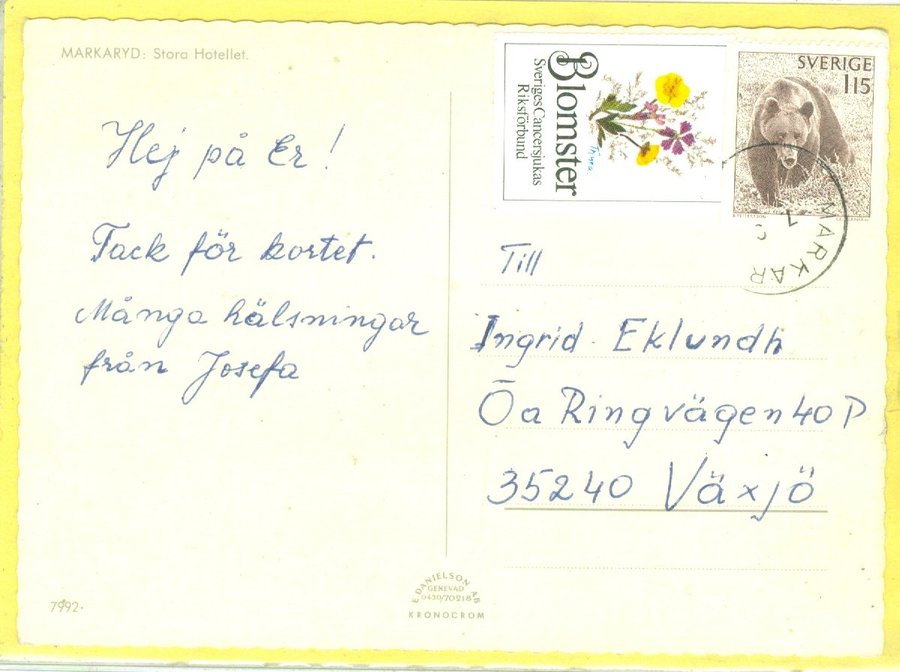 MARKARYD: Stora Hotellet.
Hej på Er!
Tack för kortet.
Många hälsningar
från Josefa
Blomster
Sveriges Cancersjukas
Riksförbund
SVERIGE
115
MARKAR
7
Till
Ingrid Eklundh
Öa Ringvägen 40 D
35240 Växjö
7992.
E. DANIELSON AB
GENEVAD
0430/70218
KRONOCROM